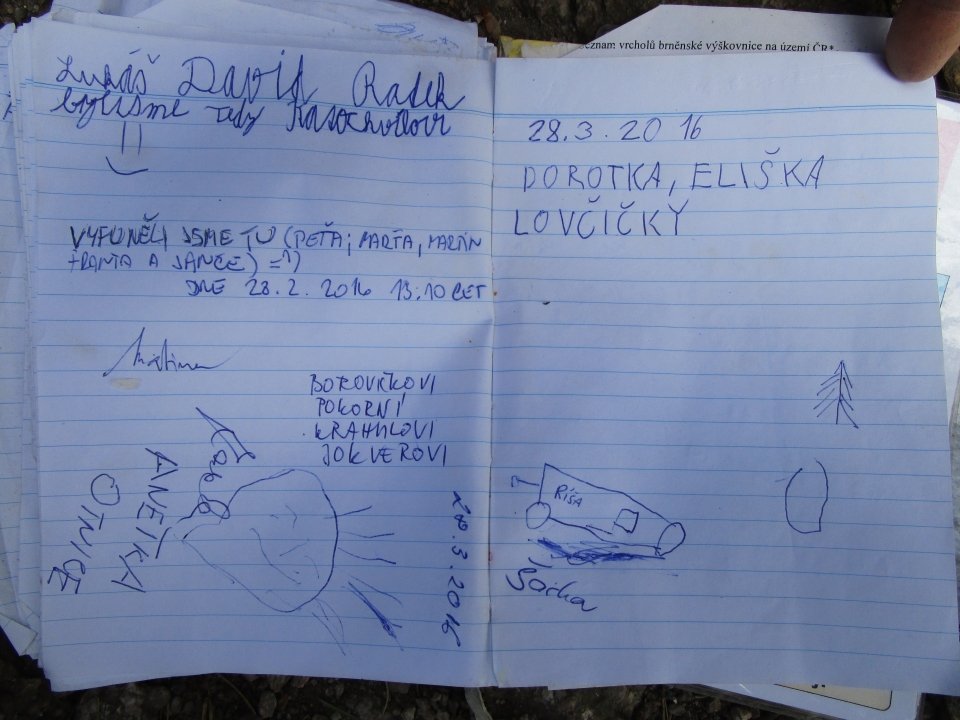 Lukáš David Radek
byli sme tedy Rasochovi
VYFUNĚLI JSME TU (PEŤA, MARŤA, MARTIN
FRANTA A JANČE) =)
DNE 28.2.2016 13:10 CET
Martina
BOROVIČKOVI
POKORNÍ
KRAHULOVI
JOKVEROVI
ANETKA
OTNICE
28.3.2016
seznam vrcholů brněnské výškovnice na území ČR*
28.3.2016
DOROTKA, ELIŠKA
LOVČIČKY
RÍŠA